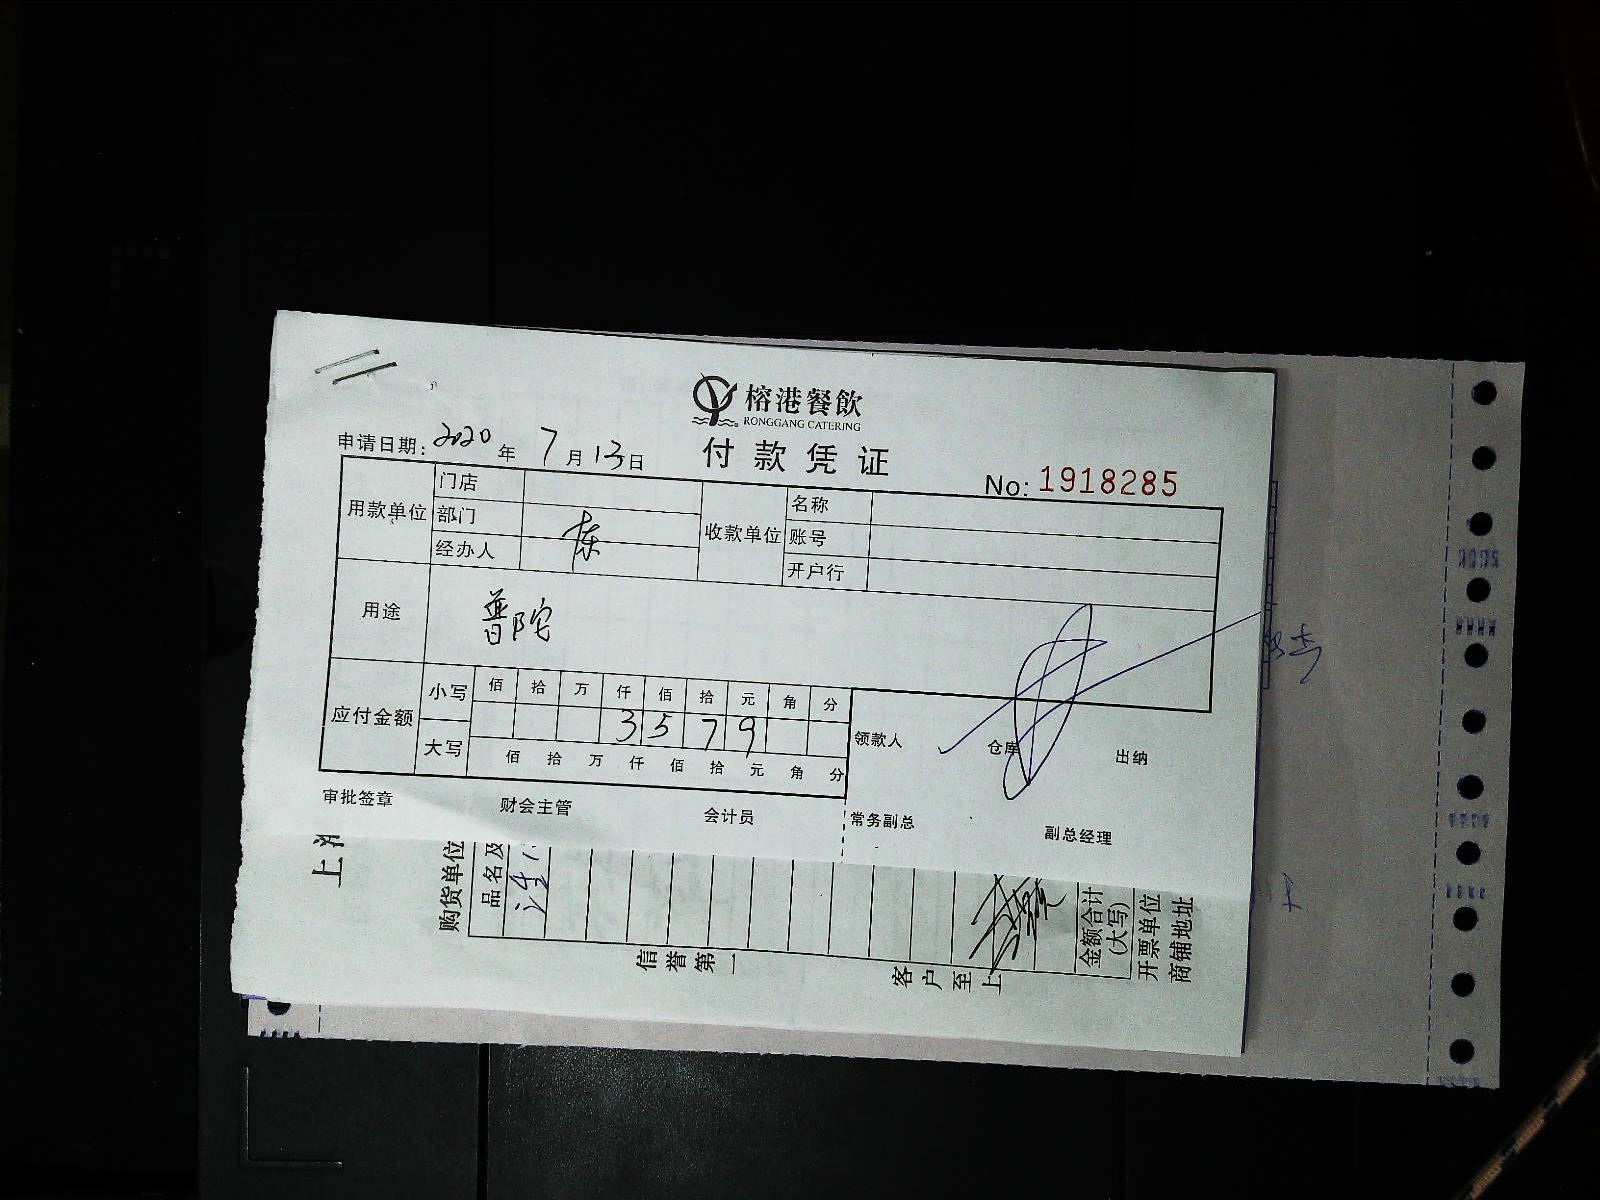 榕港餐飲
RONGGANG CATERING
付款凭证
申请日期: 2020 年 7 月 13 日
No: 1918285
用款单位 门店 收款单位 名称
部门 账号
经办人 栋 开户行
用途 普陀
应付金额 小写 佰 拾 万 仟 佰 拾 元 角 分
3 5 7 9
大写 佰 拾 万 仟 佰 拾 元 角 分
领款人 仓库 出纳
审批签章 财会主管 会计员 常务副总 副总经理
上
购货单位
品名及
金额合计
(大写)
开票单位
商铺地址
信誉第一
客户至上